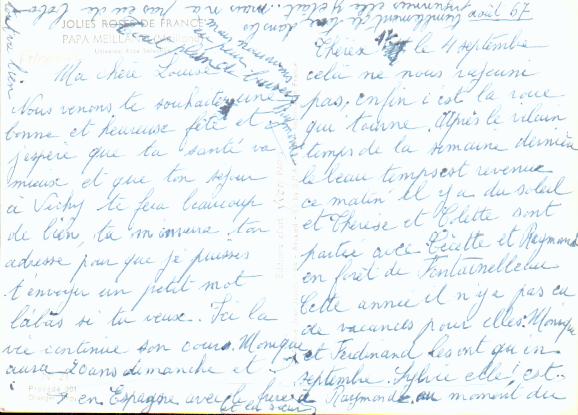 août 67
JOLIES ROSES DE FRANCE
PAPA MEILLAND
Ma chère Louise
Nous venons te souhaiter une
bonne et heureuse fête et
j'espère que ta santé va
mieux et que ton séjour
à Vichy te fera beaucoup
de bien, tu m'enverra ton
adresse pour que je puisses
t'envoyer un petit mot
làbas si tu veux. Ici la
vie continue son cours. Monique
aura 20 ans dimanche et
en Espagne avec le frère
et la sœur
Thérèse le 4 septembre
celà ne nous rajeuni
pas, enfin c'est la roue
qui tourne. Après le vilain
temps de la semaine dernière
le beau temps est revenu
ce matin il y a du soleil
et Thérèse et Odette sont
partie avec et Raymond
en forêt de Fontainebleau
Cette année il n'y a pas eu
de vacances pour elles. Monique
et Ferdinand les ont qu'en
septembre. Sylvie elle est
de Raymonde. au moment du